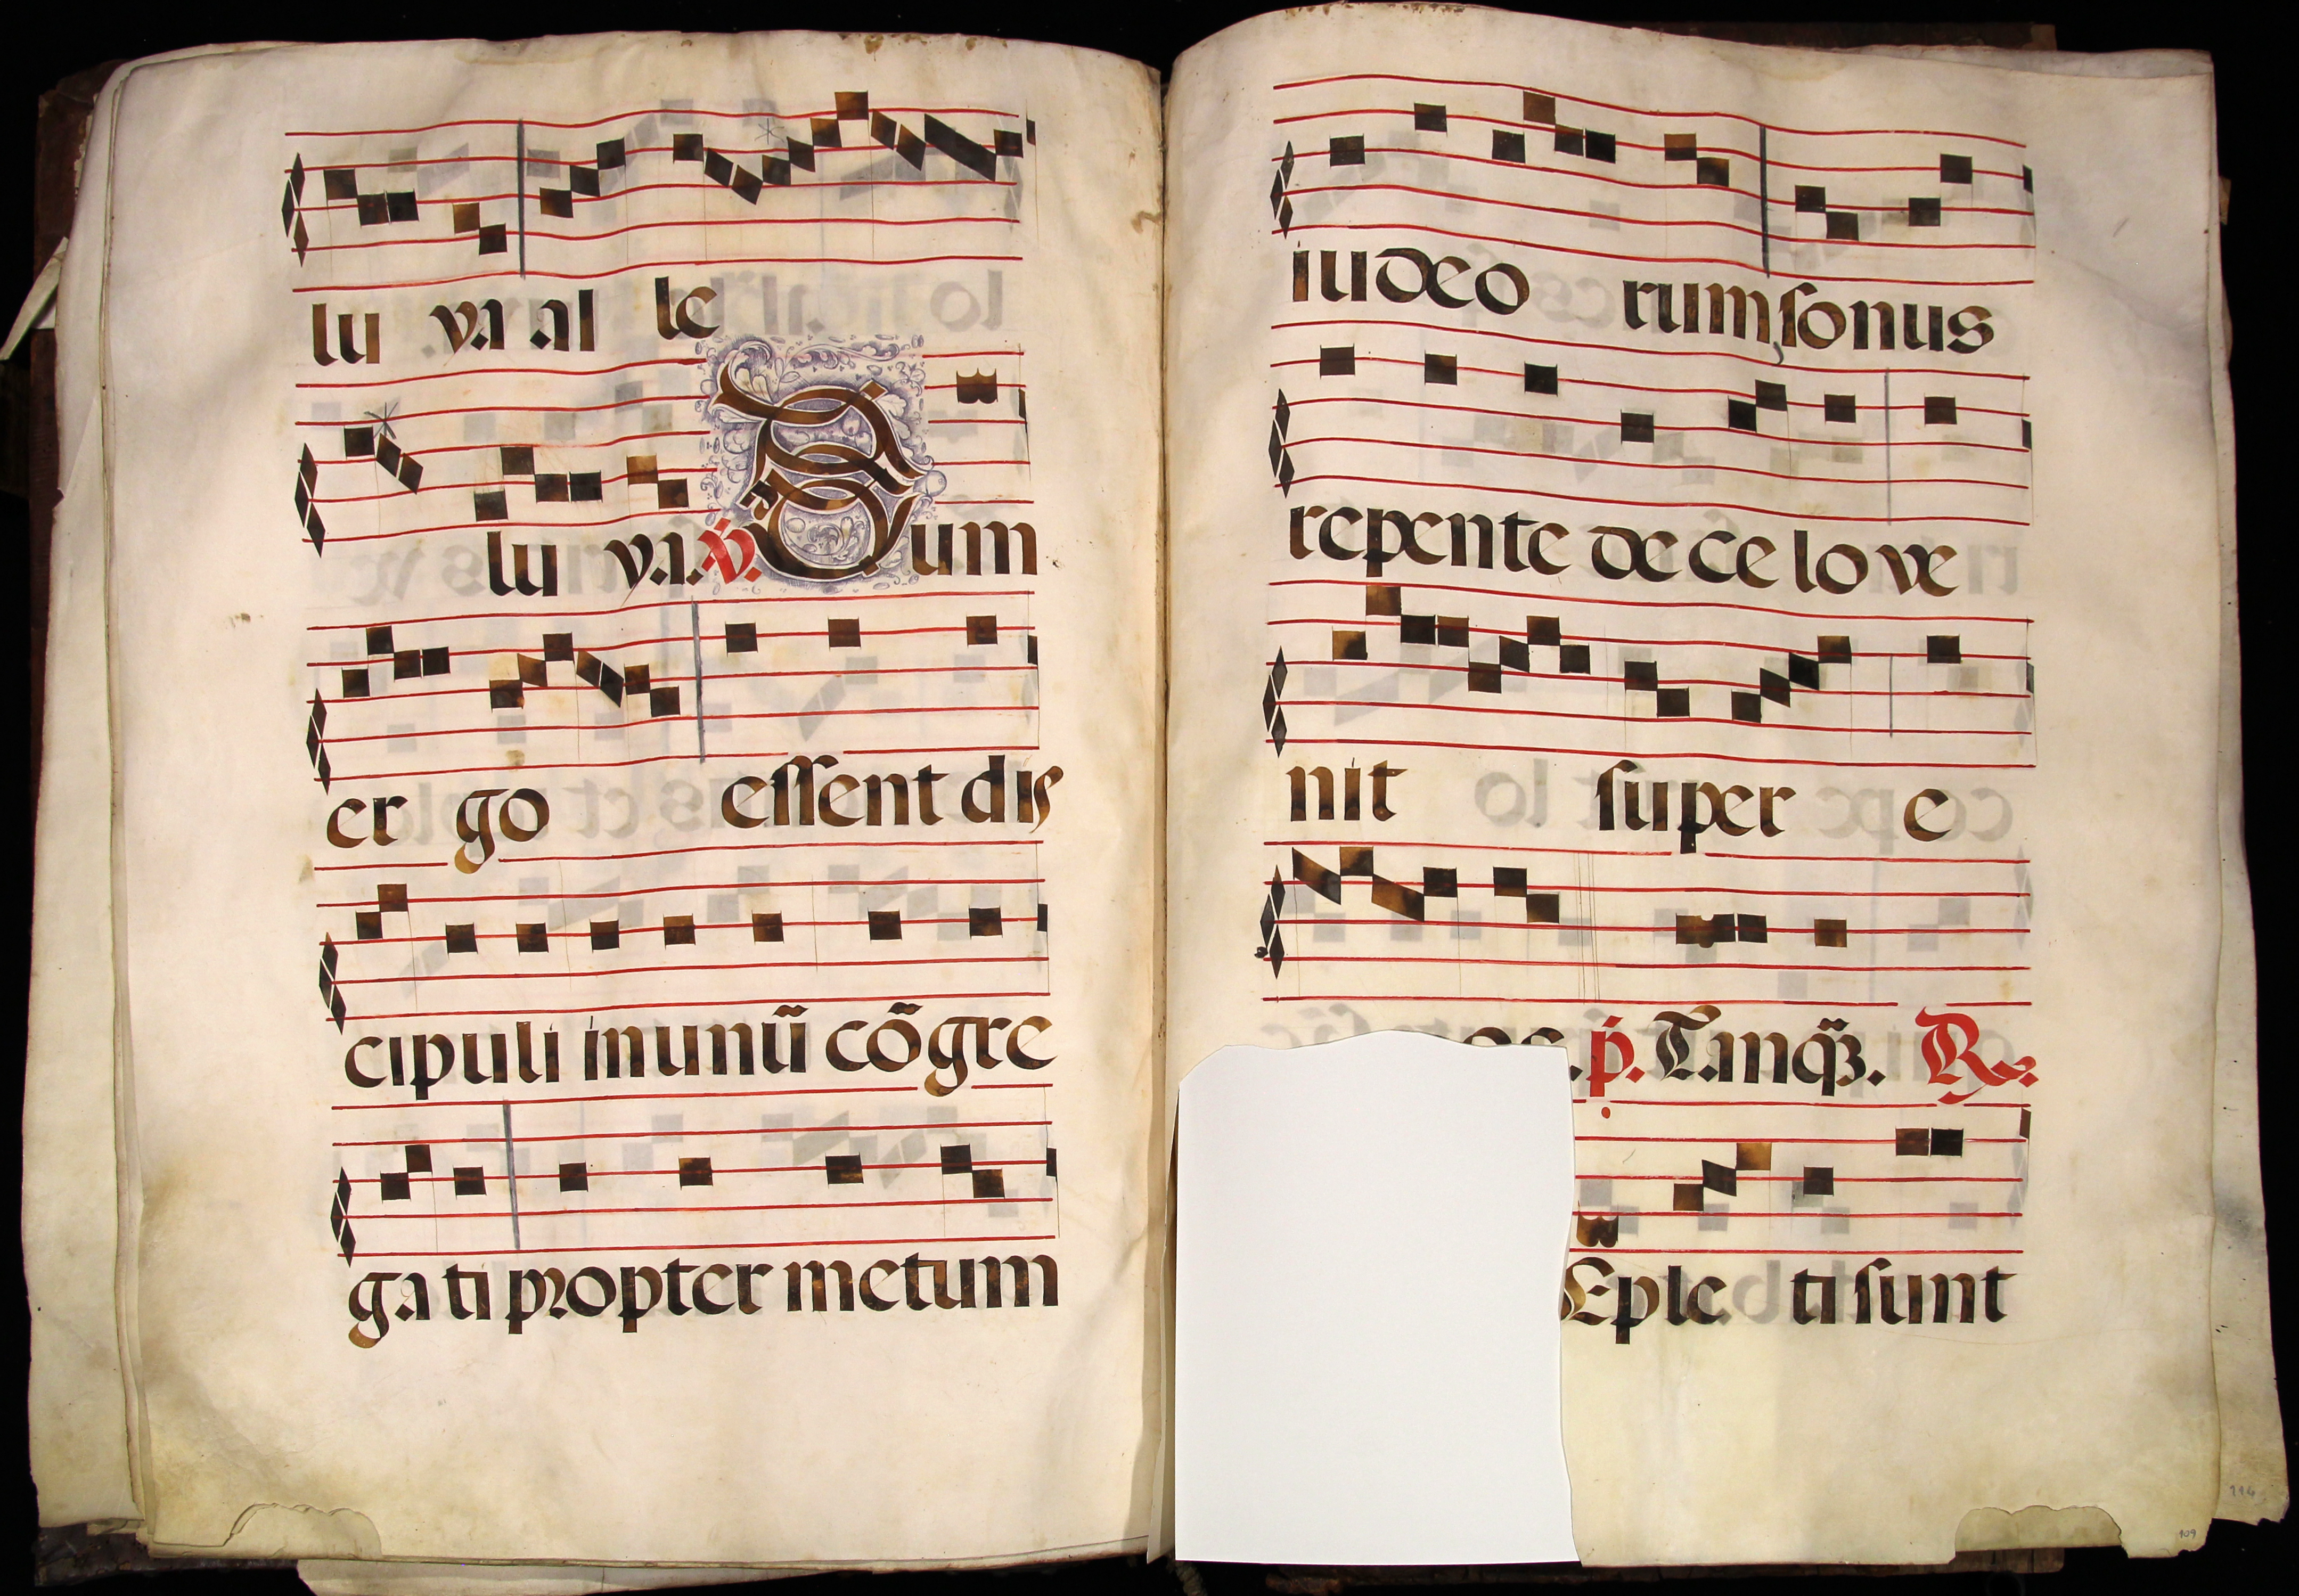 lu ya al le
lu ya. ℣. Dum
er go essent dis
cipuli in unũ cõgre
ga ti propter metum
iudeo rum, sonus
repente de ce lo ve
nit super e
os. p. Tanqȝ. R.
Eple ti sunt
114
109